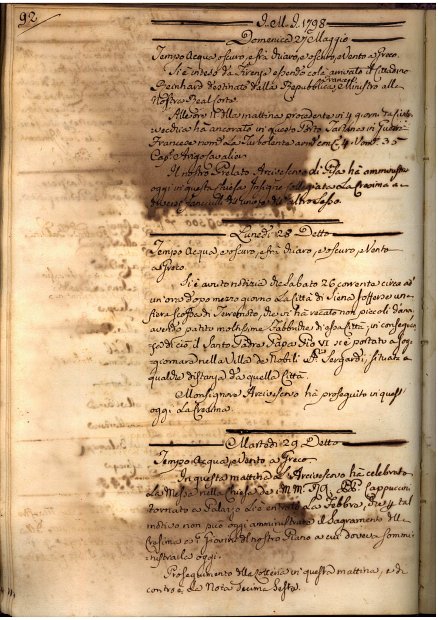 92
J. M. J. 1798
Domenica 27 Maggio
Tempo Acqua e oscuro, e frà chiaro, e oscuro, e Vento a Greco.
Si è inteso da Firenze essendo colà arrivato il Cittadino
Reinhard destinato dalla Repubblica Francese Ministro alla
Nostra Real Corte.
della mattina procedente in 4 giorni da Civita
vecchia hà ancorato in questo Porto
Francese nom. La Turbolente arm. con C. 4 Uom. 35
Cap.
Il nostro Prelato Arcivescovo di Pisa hà amministrato
oggi in questa Chiesa Insigne Collegiata La Cresima a
diversi fanciulli dell'uno, e dell'altro sesso.
Lunedì 28 Detto
Tempo Acqua e oscuro, e frà chiaro, e oscuro, e Vento
a Greco.
Si è avuto notizia che Sabato 26 corrente circa ad
un'ora dopo mezzo giorno La Città di Siena sofferse una
fiera scossa di Terremoto, che vi hà recato non piccoli danni,
avendo patito moltissime Fabbriche di essa Città; in consequen
za di ciò il Santo Padre Papa Pio VI si è portato a sog
giornare nella Villa de Nobili Sergardi, situata a
qualche distanza da quella Città.
Monsignore Arcivescovo hà proseguito in quest'
oggi La Cresima.
Martedì 29 Detto
Tempo Acqua, e Vento a Greco
In questa mattina L'Arcivescovo hà celebrato
La Messa nella Chiesa de i M.M. R.R. P.P. Cappuccini
tornato a Palazzo Li è entrato La Febbra, che p. tal
motivo non può oggi amministrare il Sagramento della
Cresima a i Giovini del nostro Piano a cui doveva sommi
nistrarla oggi.
Proseguimento della Colleria in questa mattina, e di
contro è La Nota Decima Sesta.